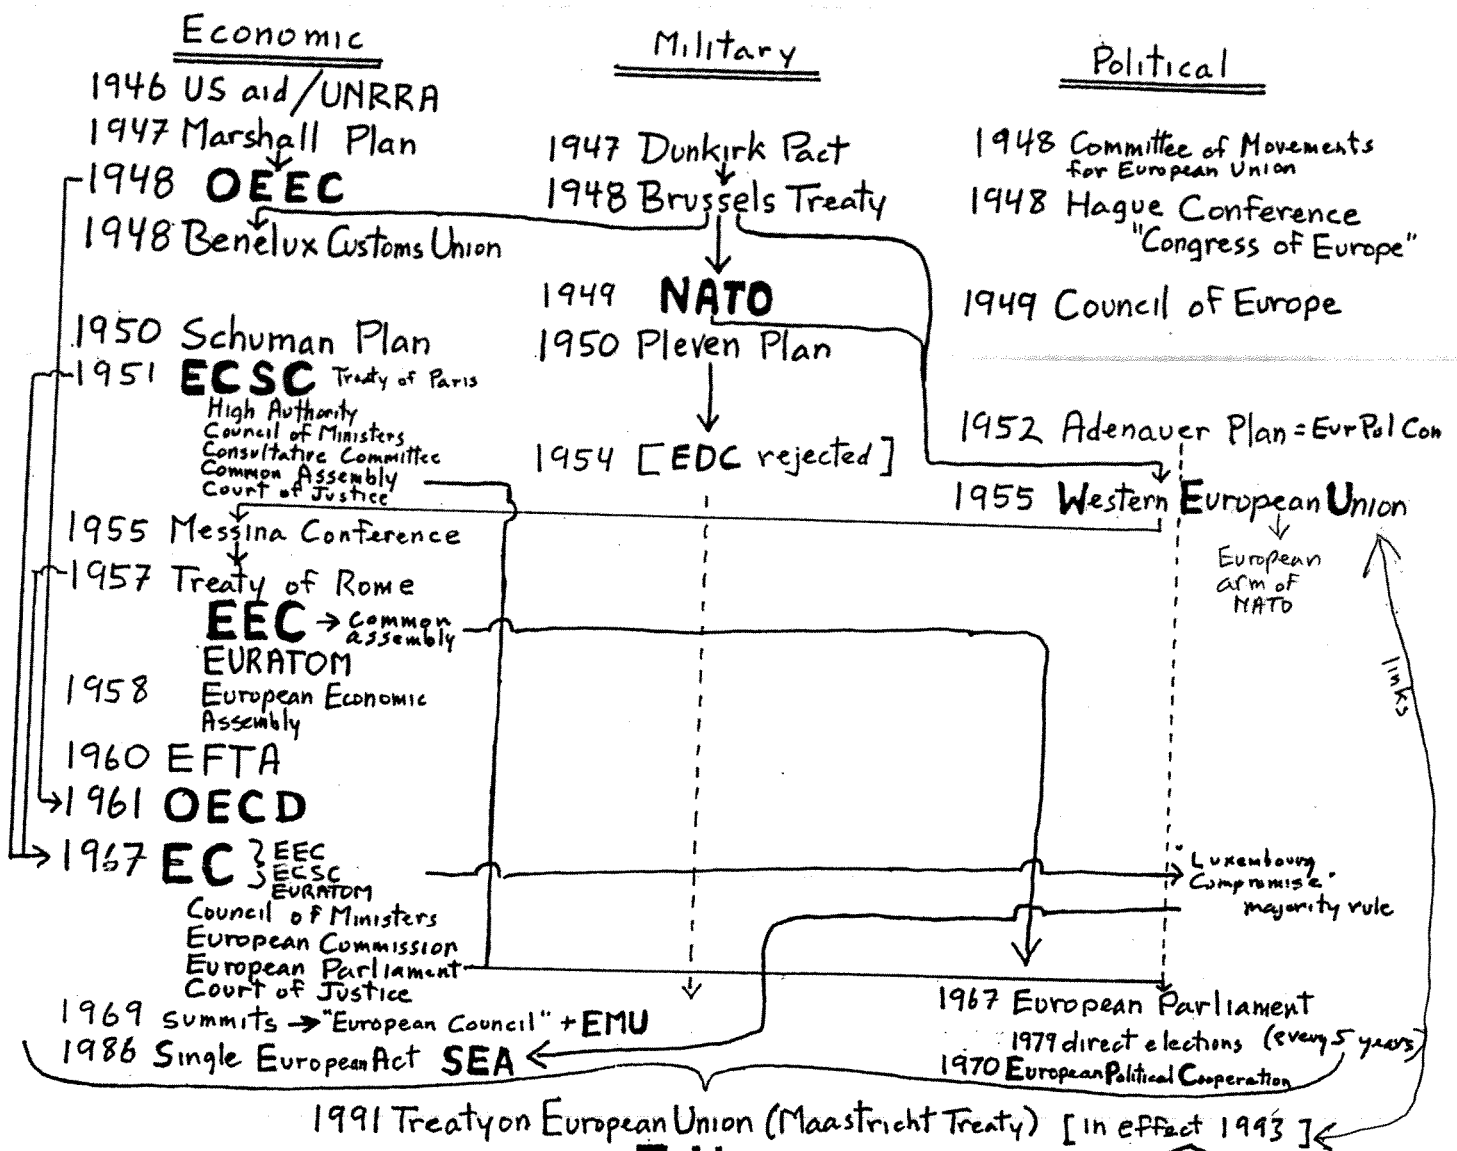 Economic
1946 US aid/UNRRA
1947 Marshall Plan
1948 OEEC
1948 Benelux Customs Union
1950 Schuman Plan
1951 ECSC Treaty of Paris
High Authority
Council of Ministers
Consultative Committee
Common Assembly
Court of Justice
1955 Messina Conference
1957 Treaty of Rome
EEC → Common
assembly
EURATOM
1958 European Economic
Assembly
1960 EFTA
1961 OECD
1967 EC } EEC
ECSC
EURATOM
Council of Ministers
European Commission
European Parliament
Court of Justice
1969 summits → "European Council" + EMU
1986 Single European Act SEA
Military
1947 Dunkirk Pact
1948 Brussels Treaty
1949 NATO
1950 Pleven Plan
1954 [EDC rejected]
Political
1948 Committee of Movements
for European Union
1948 Hague Conference
"Congress of Europe"
1949 Council of Europe
1952 Adenauer Plan = Eur Pol Com
1955 Western European Union
European
arm of
NATO
links
"Luxembourg
Compromise"
majority rule
1967 European Parliament
1979 direct elections (every 5 years)
1970 European Political Cooperation
1991 Treaty on European Union (Maastricht Treaty) [in effect 1993]